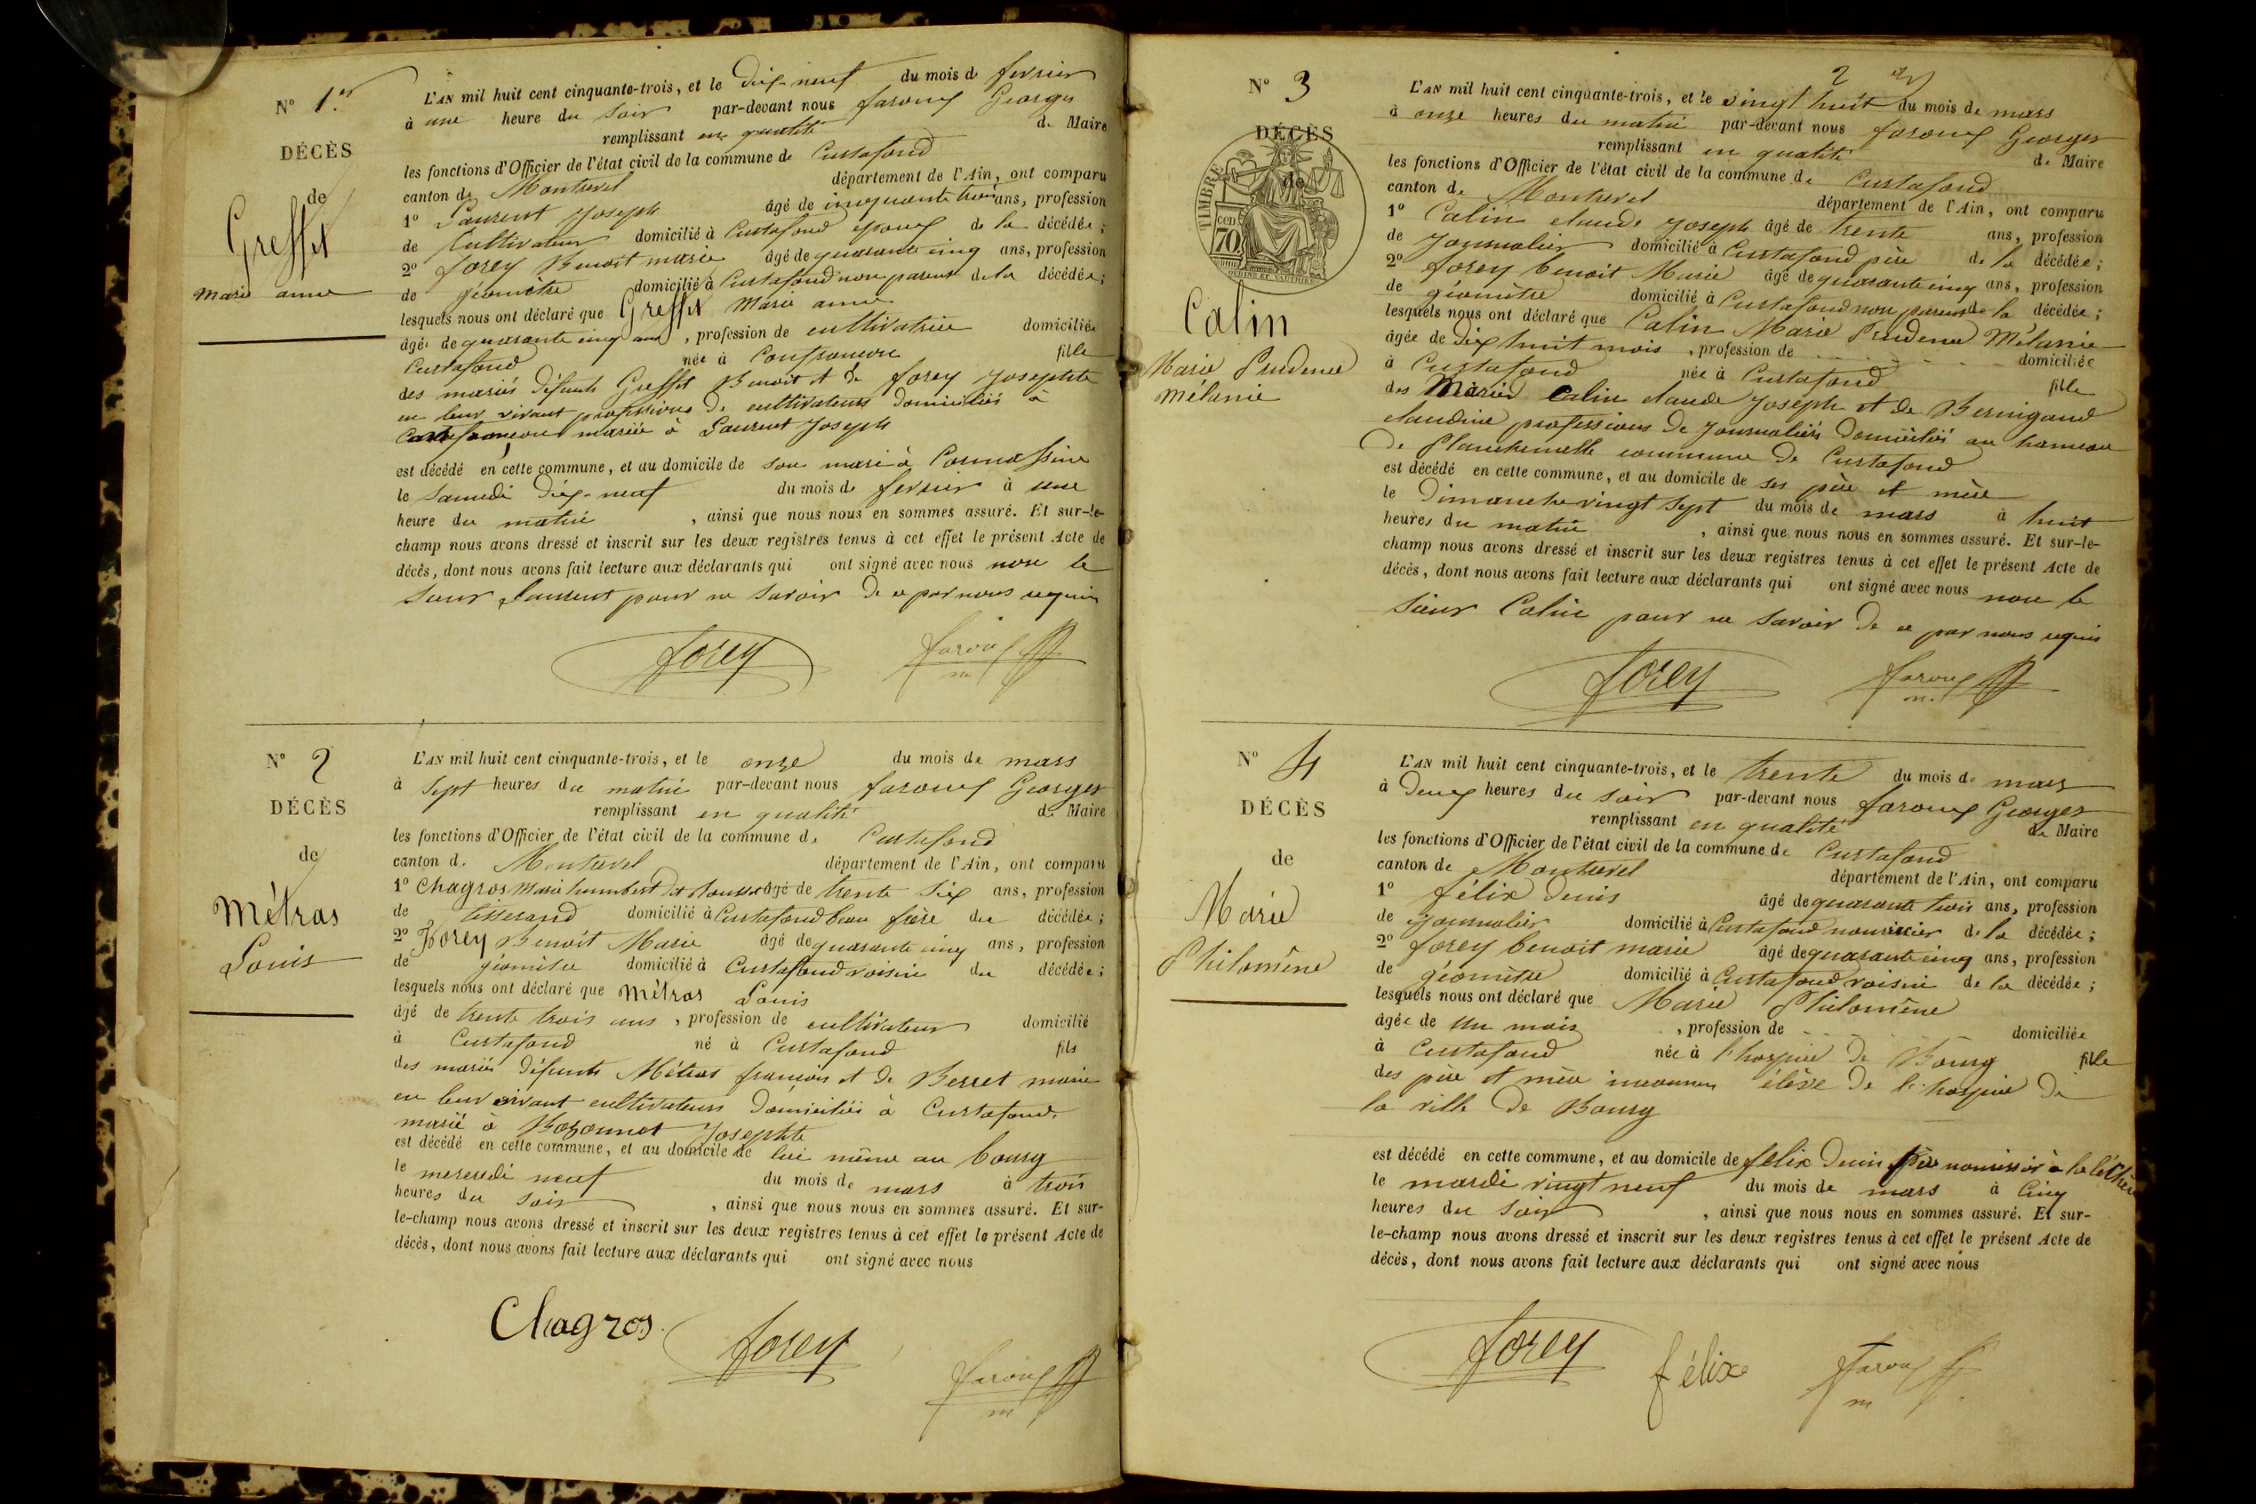 N° 1er
DÉCÈS
de
Greffet
Marie anne
L'AN mil huit cent cinquante-trois, et le dix-neuf du mois de fevrier
à une heure du soir par-devant nous faroux Georges
remplissant en qualité de Maire
les fonctions d'Officier de l'état civil de la commune de Curtafond
canton de Montrevel département de l'Ain, ont comparu
1° Laurent Joseph âgé de cinquante trois ans, profession
de Cultivateur domicilié à Curtafond époux de la décédée;
2° forey Benoit marie âgé de quarante cinq ans, profession
de géomètre domicilié à Curtafond non parent de la décédée;
lesquels nous ont déclaré que Greffet Marie anne
âgée de quarante cinq ans, profession de cultivatrice domiciliée
Curtafond née à Confrancon fille
des mariés défunts Greffet Benoit et de forey Josephte
en leur vivant professions de cultivateurs domiciliés à
Confrancon mariée à Laurent Joseph
est décédé en cette commune, et au domicile de son mari à
le samedi dix-neuf du mois de fevrier à une
heure du matin, ainsi que nous nous en sommes assuré. Et sur-le-
champ nous avons dressé et inscrit sur les deux registres tenus à cet effet le présent Acte de
décès, dont nous avons fait lecture aux déclarants qui ont signé avec nous non le
sieur Laurent pour ne savoir de ce par nous requis
forey faroux
m
N° 2
DÉCÈS
de
Métras
Louis
L'AN mil huit cent cinquante-trois, et le onze du mois de mars
à sept heures du matin par-devant nous faroux Georges
remplissant en qualité de Maire
les fonctions d'Officier de l'état civil de la commune de Curtafond
canton de Montrevel département de l'Ain, ont comparu
1° Chagros Marie humbert dit âgé de trente six ans, profession
de tisserand domicilié à Curtafond beau frère du décédée;
2° Forey Benoit Marie âgé de quarante cinq ans, profession
de géomètre domicilié à Curtafond voisin du décédée;
lesquels nous ont déclaré que Métras Louis
âgé de trente trois ans, profession de cultivateur domicilié
à Curtafond né à Curtafond fils
des mariés défunts Métras françois et de Berret marie
en leur vivant cultivateurs domiciliés à Curtafond.
marié à Bozonnet Josephte
est décédé en cette commune, et au domicile de lui même au bourg
le mercredi neuf du mois de mars à trois
heures du soir, ainsi que nous nous en sommes assuré. Et sur-
le-champ nous avons dressé et inscrit sur les deux registres tenus à cet effet le présent Acte de
décès, dont nous avons fait lecture aux déclarants qui ont signé avec nous
Chagros forey faroux
m
2
N° 3
DÉCÈS
de
TIMBRE
70
Calin
Marie Prudence
mélanie
L'AN mil huit cent cinquante-trois, et le vingt huit du mois de mars
à onze heures du matin par-devant nous faroux Georges
remplissant en qualité de Maire
les fonctions d'Officier de l'état civil de la commune de Curtafond
canton de Montrevel département de l'Ain, ont comparu
1° Calin claude Joseph âgé de trente ans, profession
de Journalier domicilié à Curtafond père de la décédée;
2° forey benoit Marie âgé de quarante cinq ans, profession
de géomètre domicilié à Curtafond non parent de la décédée;
lesquels nous ont déclaré que Calin Marie Prudence Mélanie
âgée de dix huit mois, profession de domiciliée
à Curtafond née à Curtafond fille
des Mariés Calin claude Joseph et de Bernigaud
claudine professions de journaliers domiciliés au hameau
de Planchemelle commune de Curtafond
est décédé en cette commune, et au domicile de ses père et mère
le Dimanche vingt sept du mois de mars à huit
heures du matin, ainsi que nous nous en sommes assuré. Et sur-le-
champ nous avons dressé et inscrit sur les deux registres tenus à cet effet le présent Acte de
décès, dont nous avons fait lecture aux déclarants qui ont signé avec nous non le
sieur Calin pour ne savoir de ce par nous requis
forey faroux
m.
N° 4
DÉCÈS
de
Marie
Philomène
L'AN mil huit cent cinquante-trois, et le trente du mois de mars
à deux heures du soir par-devant nous faroux Georges
remplissant en qualité de Maire
les fonctions d'Officier de l'état civil de la commune de Curtafond
canton de Montrevel département de l'Ain, ont comparu
1° félix denis âgé de quarante trois ans, profession
de journalier domicilié à Curtafond nourricier de la décédée;
2° forey benoit marie âgé de quarante cinq ans, profession
de géomètre domicilié à Curtafond voisin de la décédée;
lesquels nous ont déclaré que Marie Philomène
âgée de un mois, profession de domiciliée
à Curtafond née à l'hospice de Bourg fille
des père et mère inconnus élève de l'hospice de
la ville de Bourg
est décédé en cette commune, et au domicile de félix denis père nourricier à la léchère
le mardi vingt neuf du mois de mars à Cinq
heures du soir, ainsi que nous nous en sommes assuré. Et sur-
le-champ nous avons dressé et inscrit sur les deux registres tenus à cet effet le présent Acte de
décès, dont nous avons fait lecture aux déclarants qui ont signé avec nous
forey félix faroux
m